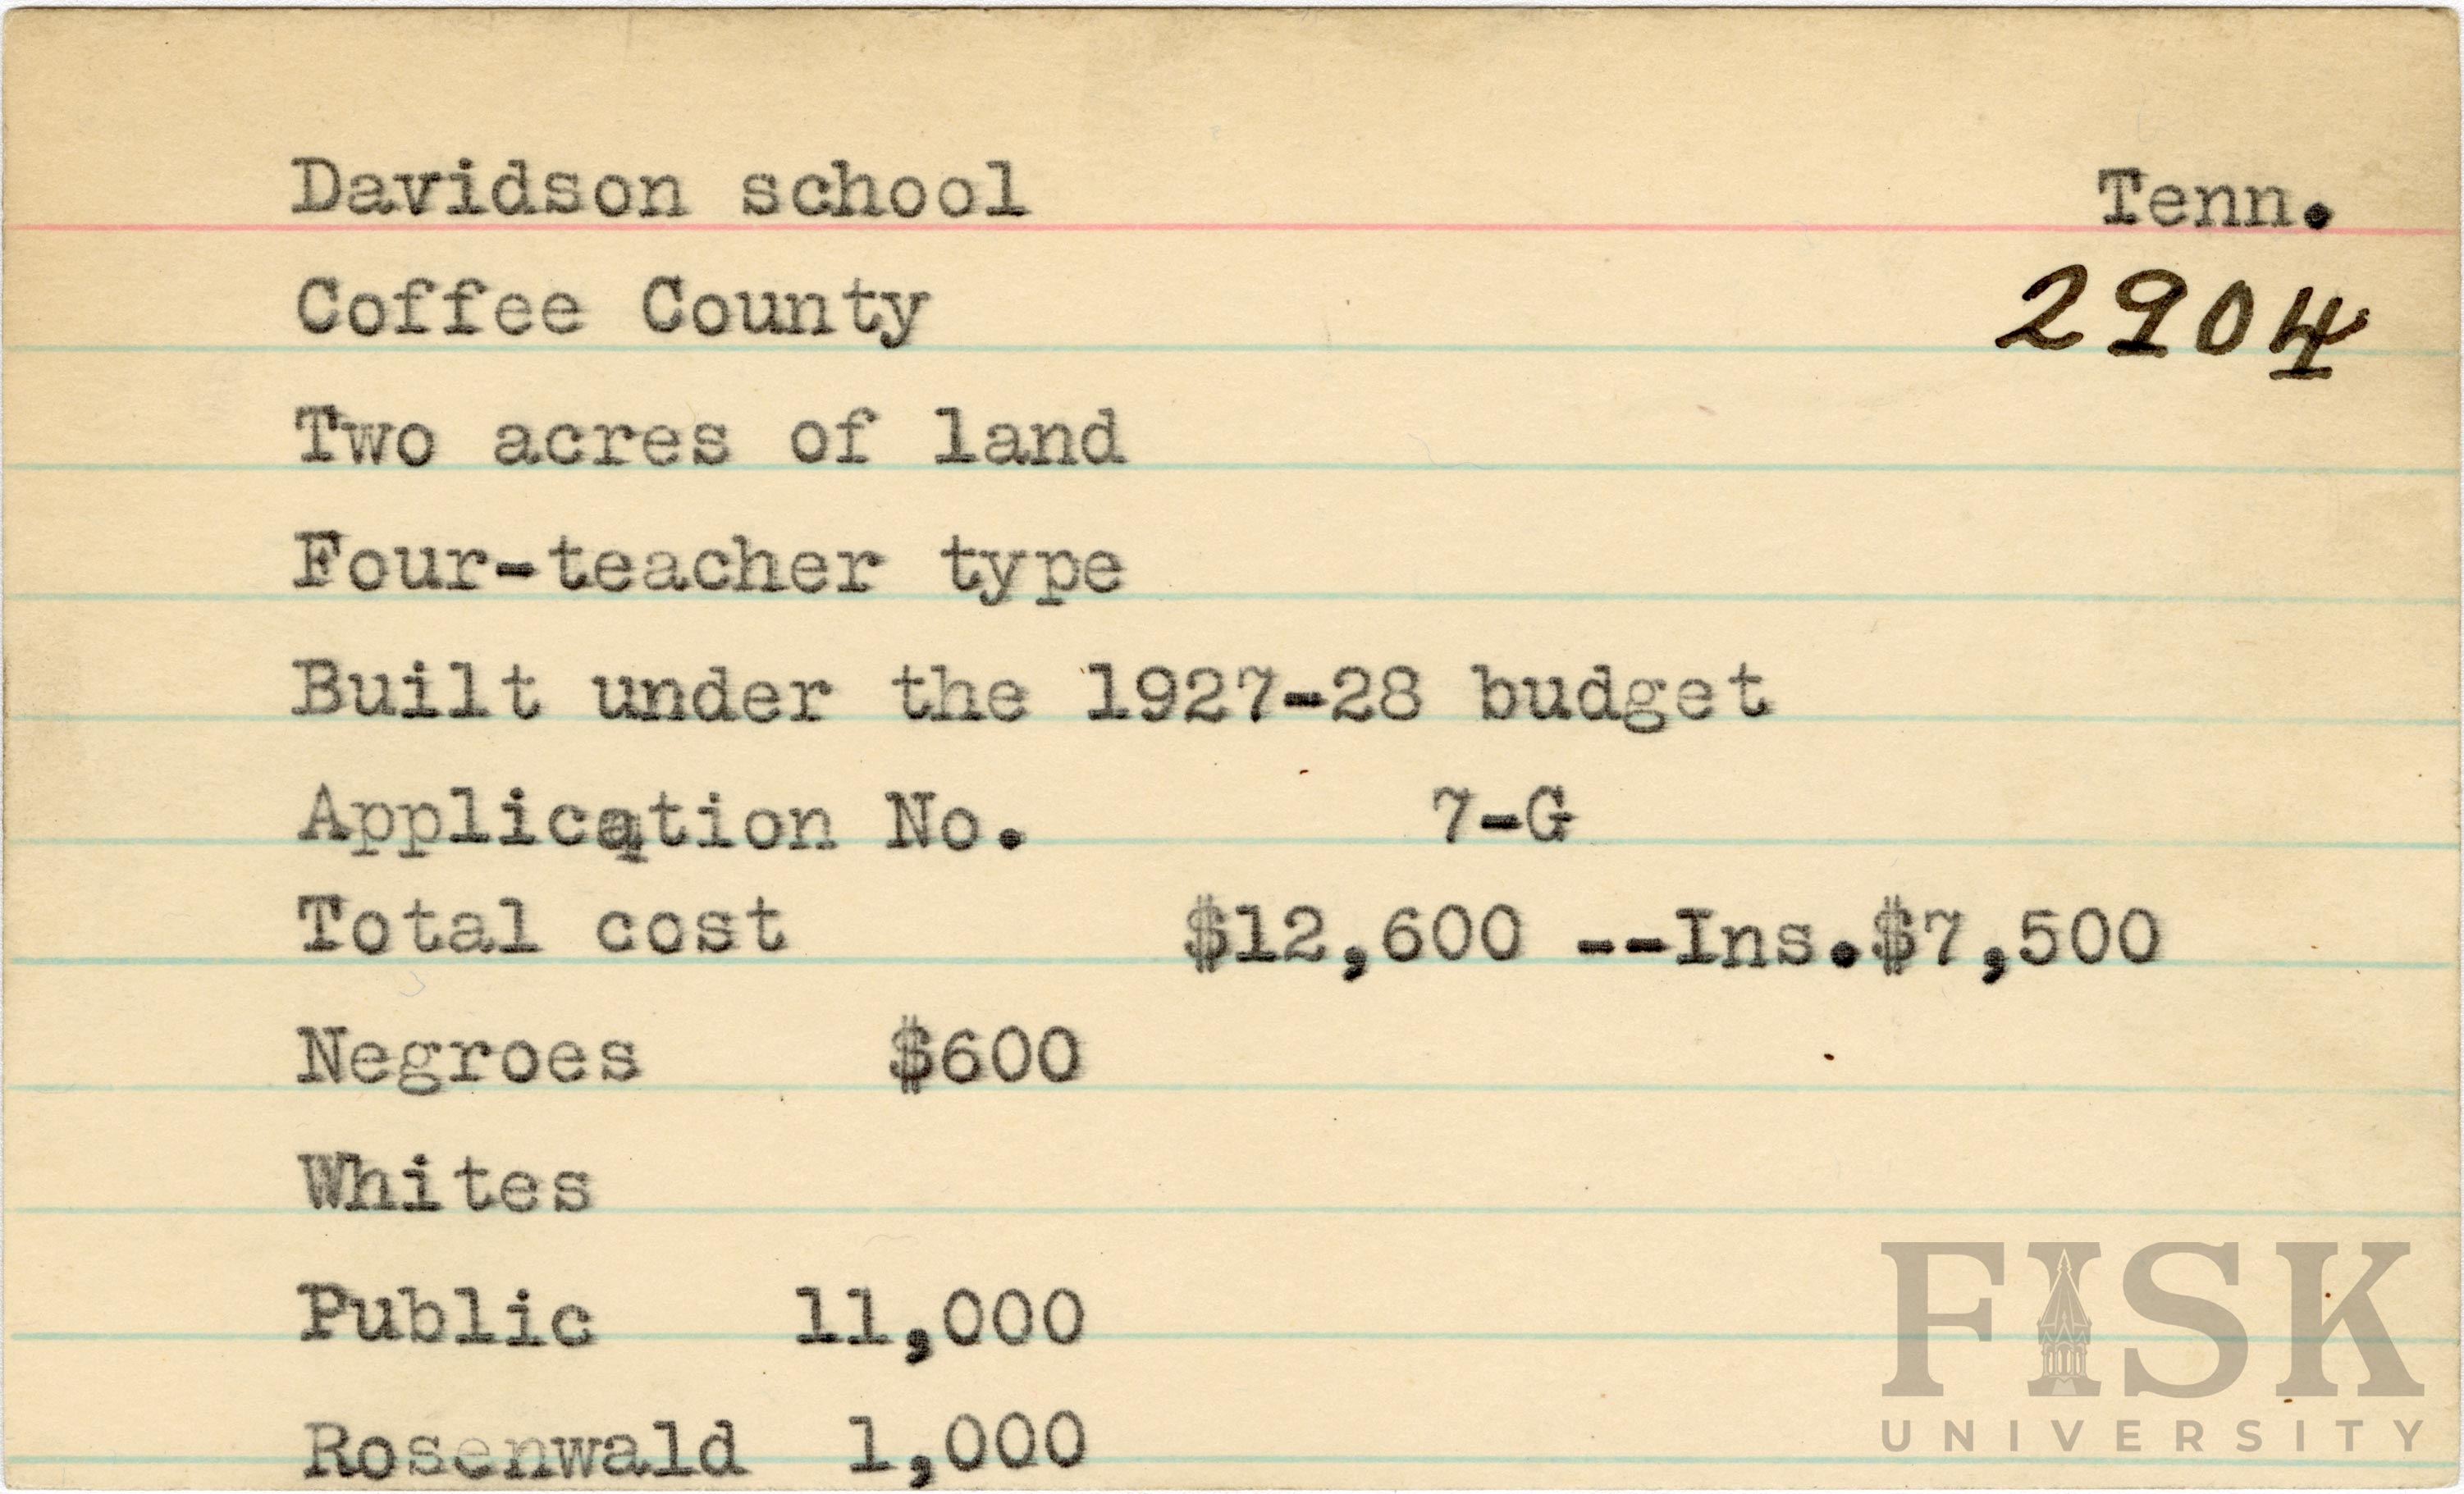 Davidson school Tenn.
Coffee County 2904
Two acres of land
Four-teacher type
Built under the 1927-28 budget
Application No. 7-G
Total cost $12,600 --Ins.$7,500
Negroes $600
Whites
Public 11,000
Rosenwald 1,000
FISK
UNIVERSITY